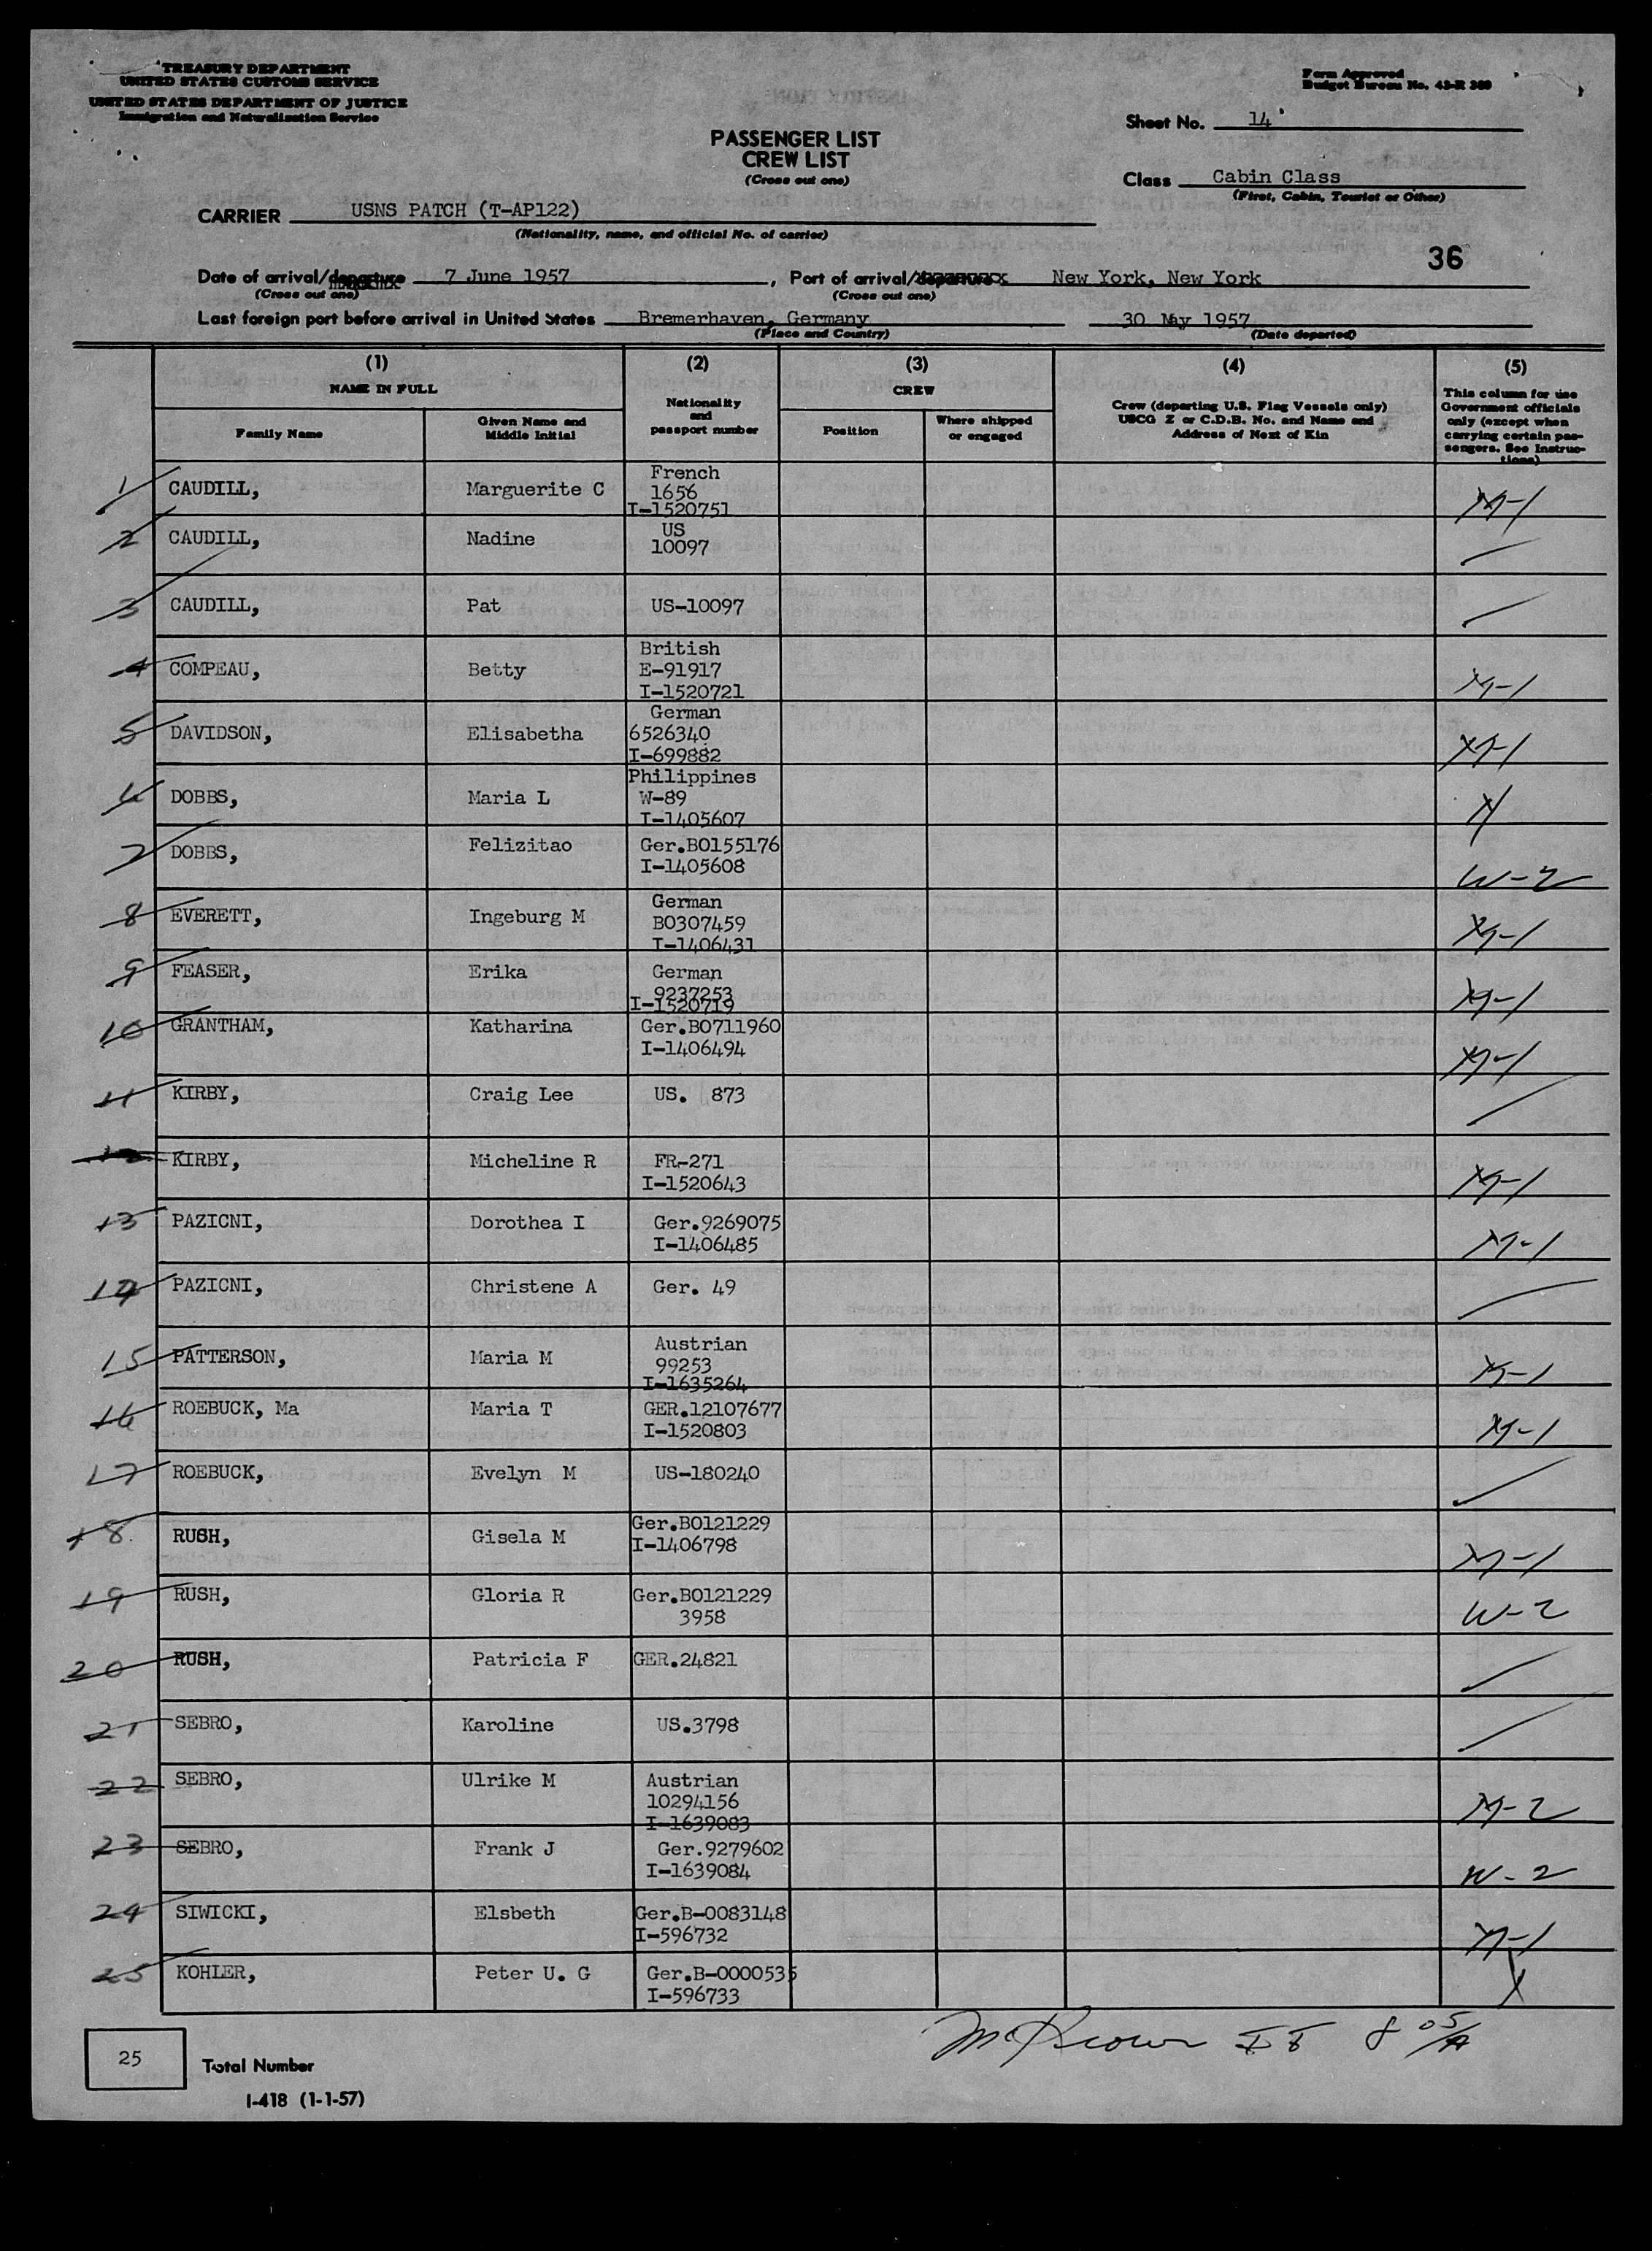 TREASURY DEPARTMENT
UNITED STATES CUSTOMS SERVICE
UNITED STATES DEPARTMENT OF JUSTICE
Immigration and Naturalization Service
Form Approved
Budget Bureau No. 43-R 369
Sheet No. 14
PASSENGER LIST
CREW LIST
(Cross out one)
Class Cabin Class
(First, Cabin, Tourist or Other)
CARRIER USNS PATCH (T-AP122)
(Nationality, name, and official No. of carrier)
36
Date of arrival/departure 7 June 1957, Port of arrival/departure New York, New York
(Cross out one) (Cross out one)
Last foreign port before arrival in United States Bremerhaven, Germany 30 May 1957
(Place and Country) (Date departed)
(1) (2) (3) (4) (5)
NAME IN FULL
Family Name
Given Name and
Middle Initial
Nationality
and
passport number
CREW
Position
Where shipped
or engaged
Crew (departing U.S. Flag Vessels only)
USCG Z or C.D.B. No. and Name and
Address of Next of Kin
This column for use
Government officials
only (except when
carrying certain pas-
sengers. See Instruc-
tions)
1 CAUDILL, Marguerite C French
1656
I-1520751 M-1
2 CAUDILL, Nadine US
10097
3 CAUDILL, Pat US-10097
4 COMPEAU, Betty British
E-91917
I-1520721 M-1
5 DAVIDSON, Elisabetha German
6526340
I-699882 M-1
6 DOBBS, Maria L Philippines
W-89
I-1405607
7 DOBBS, Felizitao Ger.BO155176
I-1405608 W-2
8 EVERETT, Ingeburg M German
BO307459
I-1406431 M-1
9 FEASER, Erika German
9237253
I-1520719 M-1
10 GRANTHAM, Katharina Ger.BO711960
I-1406494 M-1
11 KIRBY, Craig Lee US. 873
12 KIRBY, Micheline R FR-271
I-1520643 M-1
13 PAZICNI, Dorothea I Ger.9269075
I-1406485 M-1
14 PAZICNI, Christene A Ger. 49
15 PATTERSON, Maria M Austrian
99253
I-1635264 M-1
16 ROEBUCK, Ma Maria T GER.12107677
I-1520803 M-1
17 ROEBUCK, Evelyn M US-180240
18 RUSH, Gisela M Ger.BO121229
I-1406798 M-1
19 RUSH, Gloria R Ger.BO121229
3958 W-2
20 RUSH, Patricia F GER.24821
21 SEBRO, Karoline US.3798
22 SEBRO, Ulrike M Austrian
10294156
I-1639083 M-2
23 SEBRO, Frank J Ger.9279602
I-1639084 W-2
24 SIWICKI, Elsbeth Ger.B-0083148
I-596732 M-1
25 KOHLER, Peter U. G Ger.B-0000535
I-596733
25 Total Number
I-418 (1-1-57)